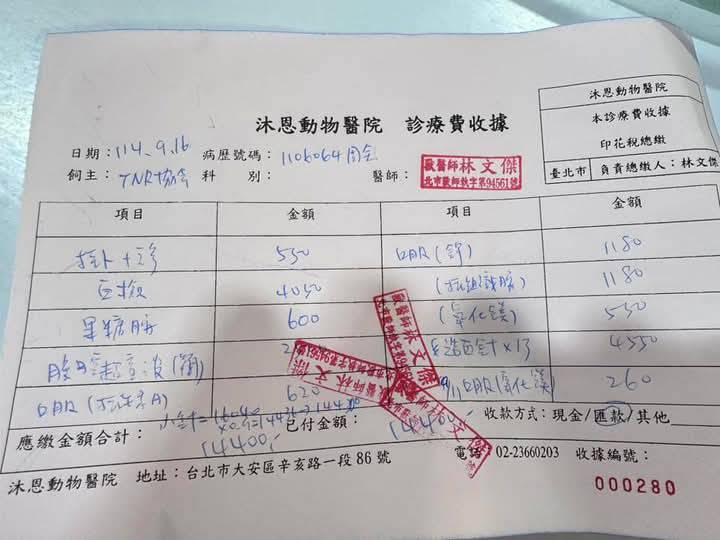 沐恩動物醫院
本診療費收據
印花稅總繳
臺北市 負責總繳人:林文傑
沐恩動物醫院 診療費收據
日期:114.9.16 病歷號碼:1106064
飼主:TNR協會 科 別: 醫師:
獸醫師林文傑
北市獸師執字第94561號
項目 金額 項目 金額
掛+診 550 口服( ) 1180
血檢 4050 (抗組織胺) 1180
果糖胺 600 (氧化鎂) 550
腹部超音波(簡) 2 針×13 4550
口服( A) 620 9/11口服(氧化鎂) 260
小計=16040
應繳金額合計:14400 已付金額:14400 收款方式:現金/匯款/其他
獸醫師林文傑
獸醫師林文傑
沐恩動物醫院 地址:台北市大安區辛亥路一段86號 電話:02-23660203 收據編號:
000280